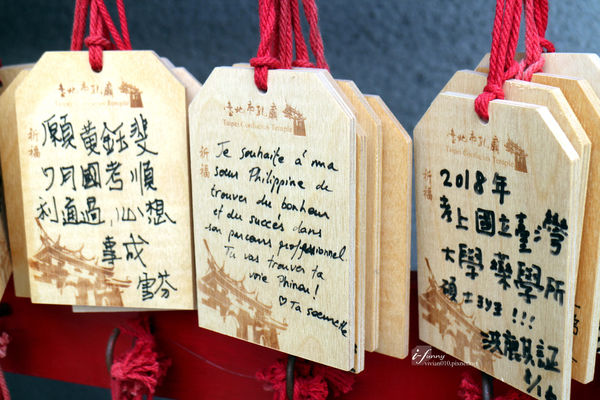 臺北市孔廟
Taipei Confucius Temple
祈福
願黃鈺斐
7月國考順
利通過,心想
事成
雪芬
臺北市孔廟
Taipei Confucius Temple
祈福
Je souhaite à ma
sœur Philippine de
trouver du bonheur
et du succés dans
son parcours professionnel.
Tu vas trouver ta
voie Phinou!
♡ Ta soeurette
臺北市孔廟
Taipei Confucius Temple
祈福
2018年
考上國立臺灣
大學藥學所
碩士班!!!
vivian010.pixnet.net